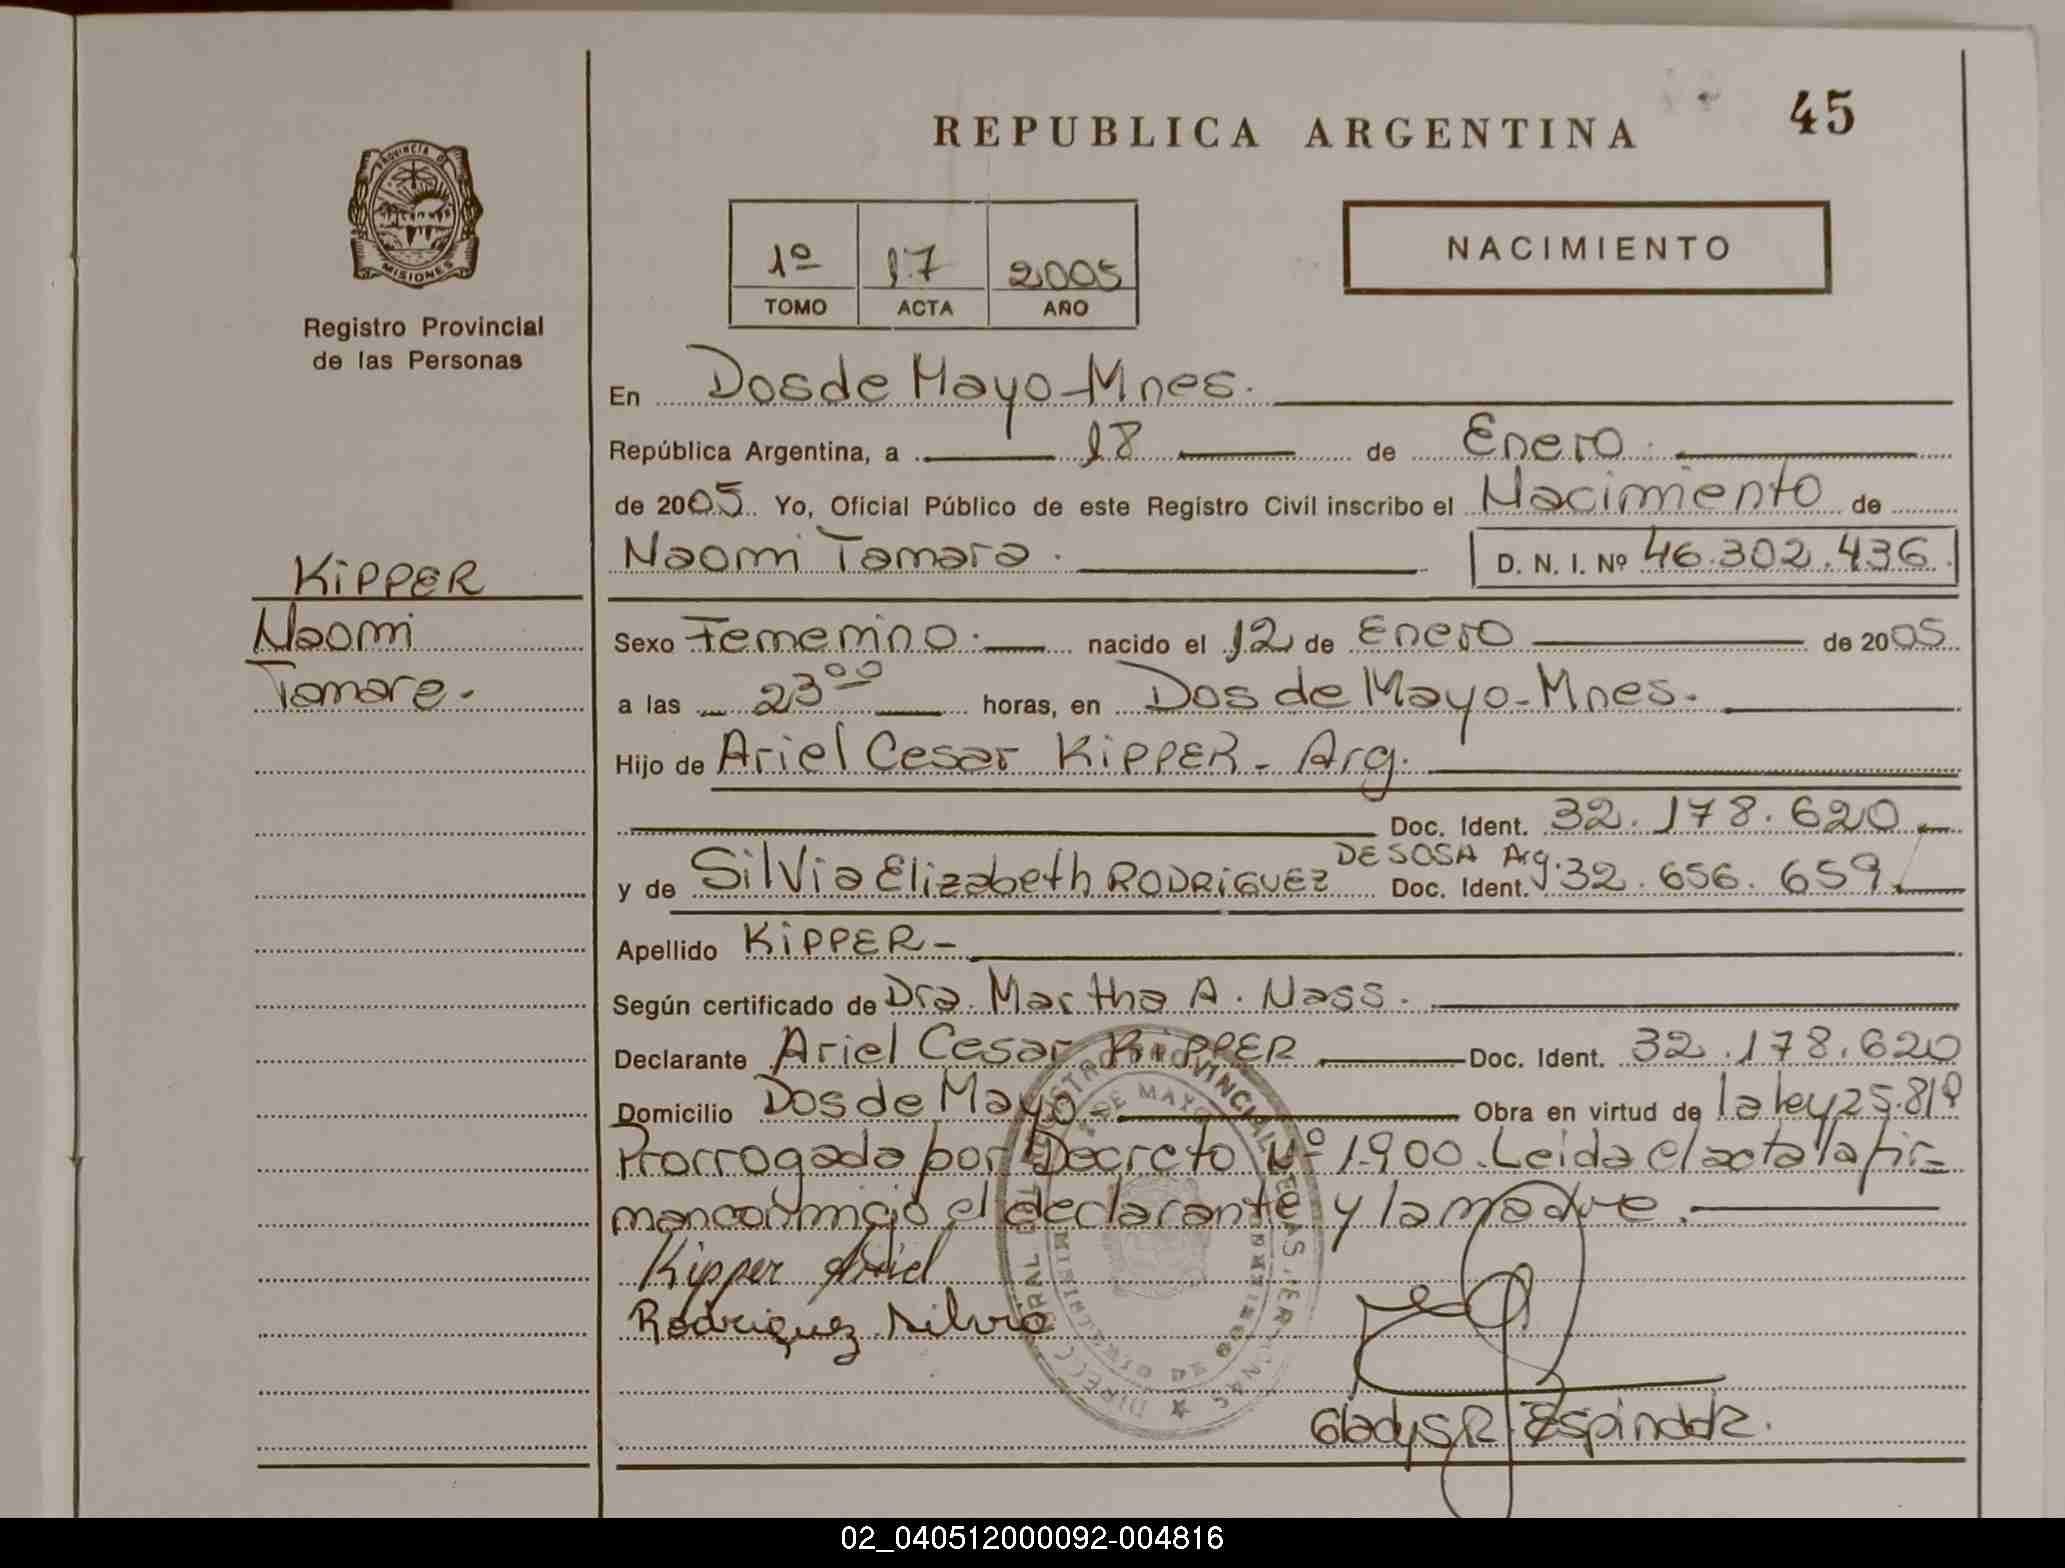 REPUBLICA ARGENTINA
45
PROVINCIA DE
MISIONES
Registro Provincial
de las Personas
1º 17 2005
TOMO ACTA AÑO
NACIMIENTO
En Dos de Mayo-Mnes.
República Argentina, a 18 de Enero.
de 2005. Yo, Oficial Público de este Registro Civil inscribo el Nacimiento de
Naomi Tamara. D. N. I. Nº 46.302.436.
KIPPER
Naomi
Tamara.-
Sexo Femenino. nacido el 12 de Enero de 2005
a las 23⁰⁰ horas, en Dos de Mayo-Mnes.
Hijo de Ariel Cesar KIPPER - Arg.
Doc. Ident. 32.178.620
y de Silvia Elizabeth RODRIGUEZ DE SOSA Arg. Doc. Ident. 32.656.659.
Apellido KIPPER-
Según certificado de Dra. Martha A. Nass.
Declarante Ariel Cesar KIPPER Doc. Ident. 32.178.620
Domicilio Dos de Mayo Obra en virtud de la ley 25.819
Prorrogada por Decreto Nº 1.900. Leida el acta la fir-
man conmigo el declarante y la madre.
Kipper Ariel
Rodriguez Silvia
Gladys R. Espindola.
02_040512000092-004816